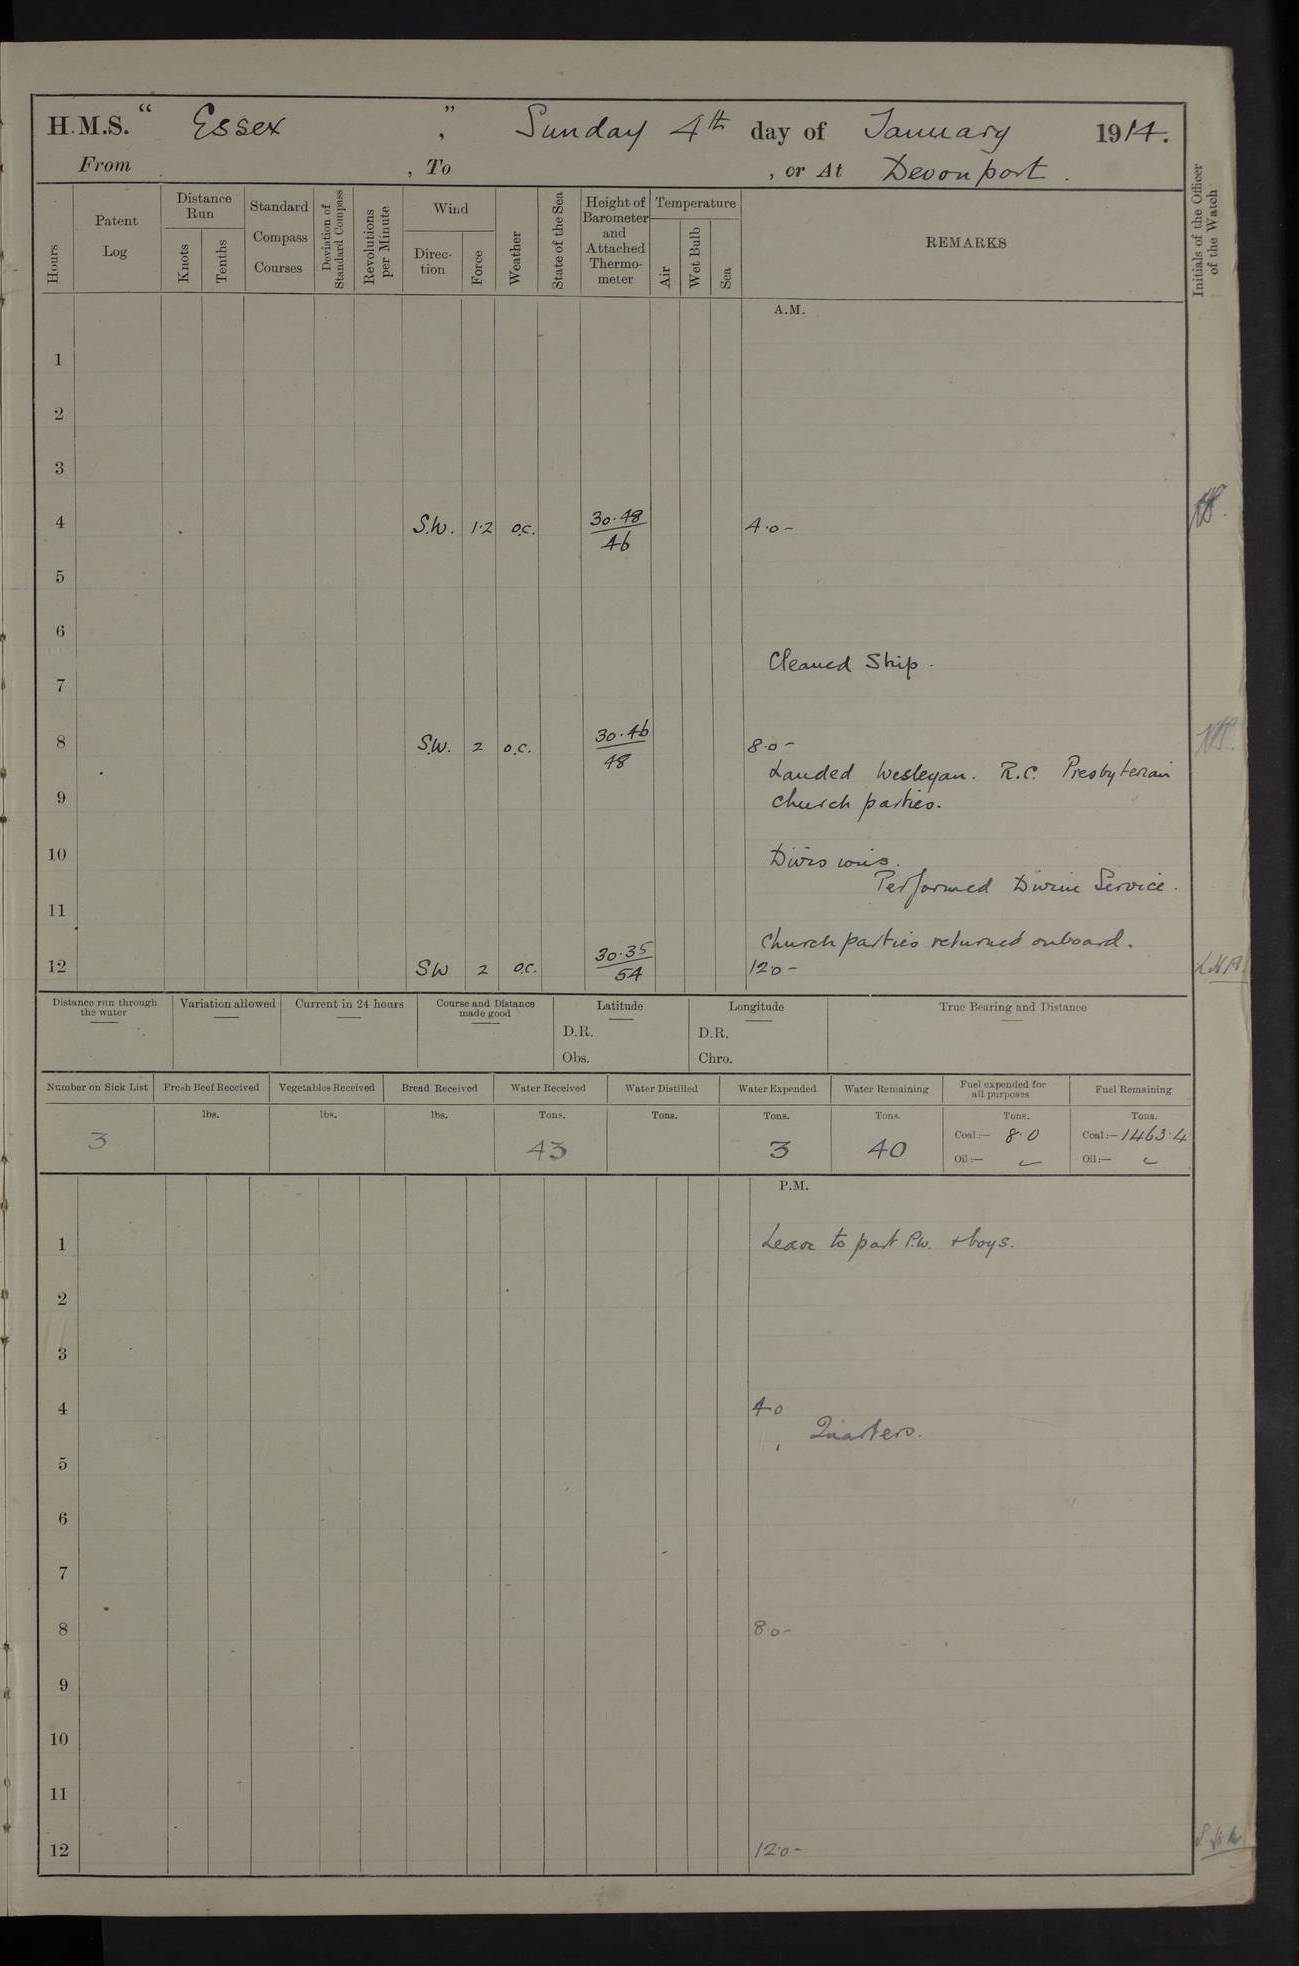 H.M.S. " Essex ", Sunday 4th day of January 1914.
From , To , or At Devonport.
Hours
Patent Log
Distance Run
Knots
Tenths
Standard Compass Courses
Deviation of Standard Compass
Revolutions per Minute
Wind
Direc-tion
Force
Weather
State of the Sea
Height of Barometer and Attached Thermo-meter
Temperature
Air
Wet Bulb
Sea
REMARKS
Initials of the Officer of the Watch
A.M.
1
2
3
4 S.W. 1·2 o.c. 30·48 4·0-
46
5
6
Cleaned Ship.
7
8 S.W. 2 o.c. 30·46 8·0-
48
Landed Wesleyan. R.C. Presbyterian
9 church parties.
10 Divisions.
Performed Divine Service.
11
Church parties returned onboard.
12 SW 2 o.c. 30·35 12·0-
54
Distance run through the water
Variation allowed
Current in 24 hours
Course and Distance made good
Latitude
D.R.
Obs.
Longitude
D.R.
Chro.
True Bearing and Distance
Number on Sick List
Fresh Beef Received
Vegetables Received
Bread Received
Water Received
Water Distilled
Water Expended
Water Remaining
Fuel expended for all purposes
Fuel Remaining
lbs. lbs. lbs. Tons. Tons. Tons. Tons. Tons. Tons.
3 43 3 40 Coal:— 8·0 Coal:— 1463·4
Oil:— Oil:—
P.M.
1 Leave to part P.W. + boys.
2
3
4 4·0
Quarters.
5
6
7
8 8·0-
9
10
11
12 12·0-